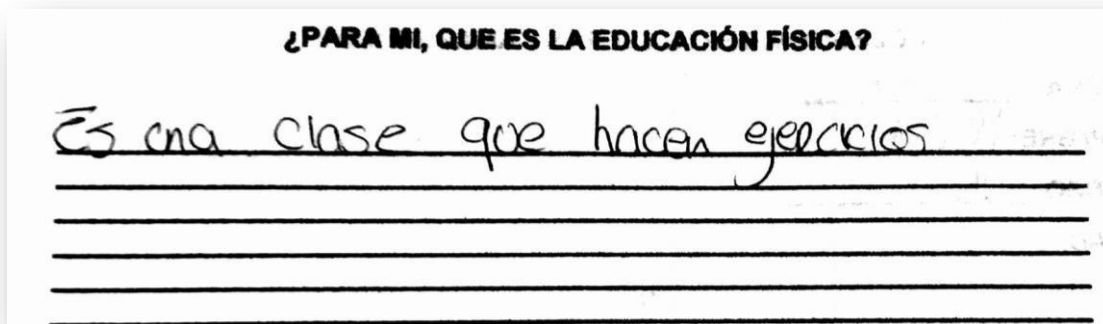 ¿PARA MI, QUE ES LA EDUCACIÓN FÍSICA?
Es una clase que hacen ejercicios